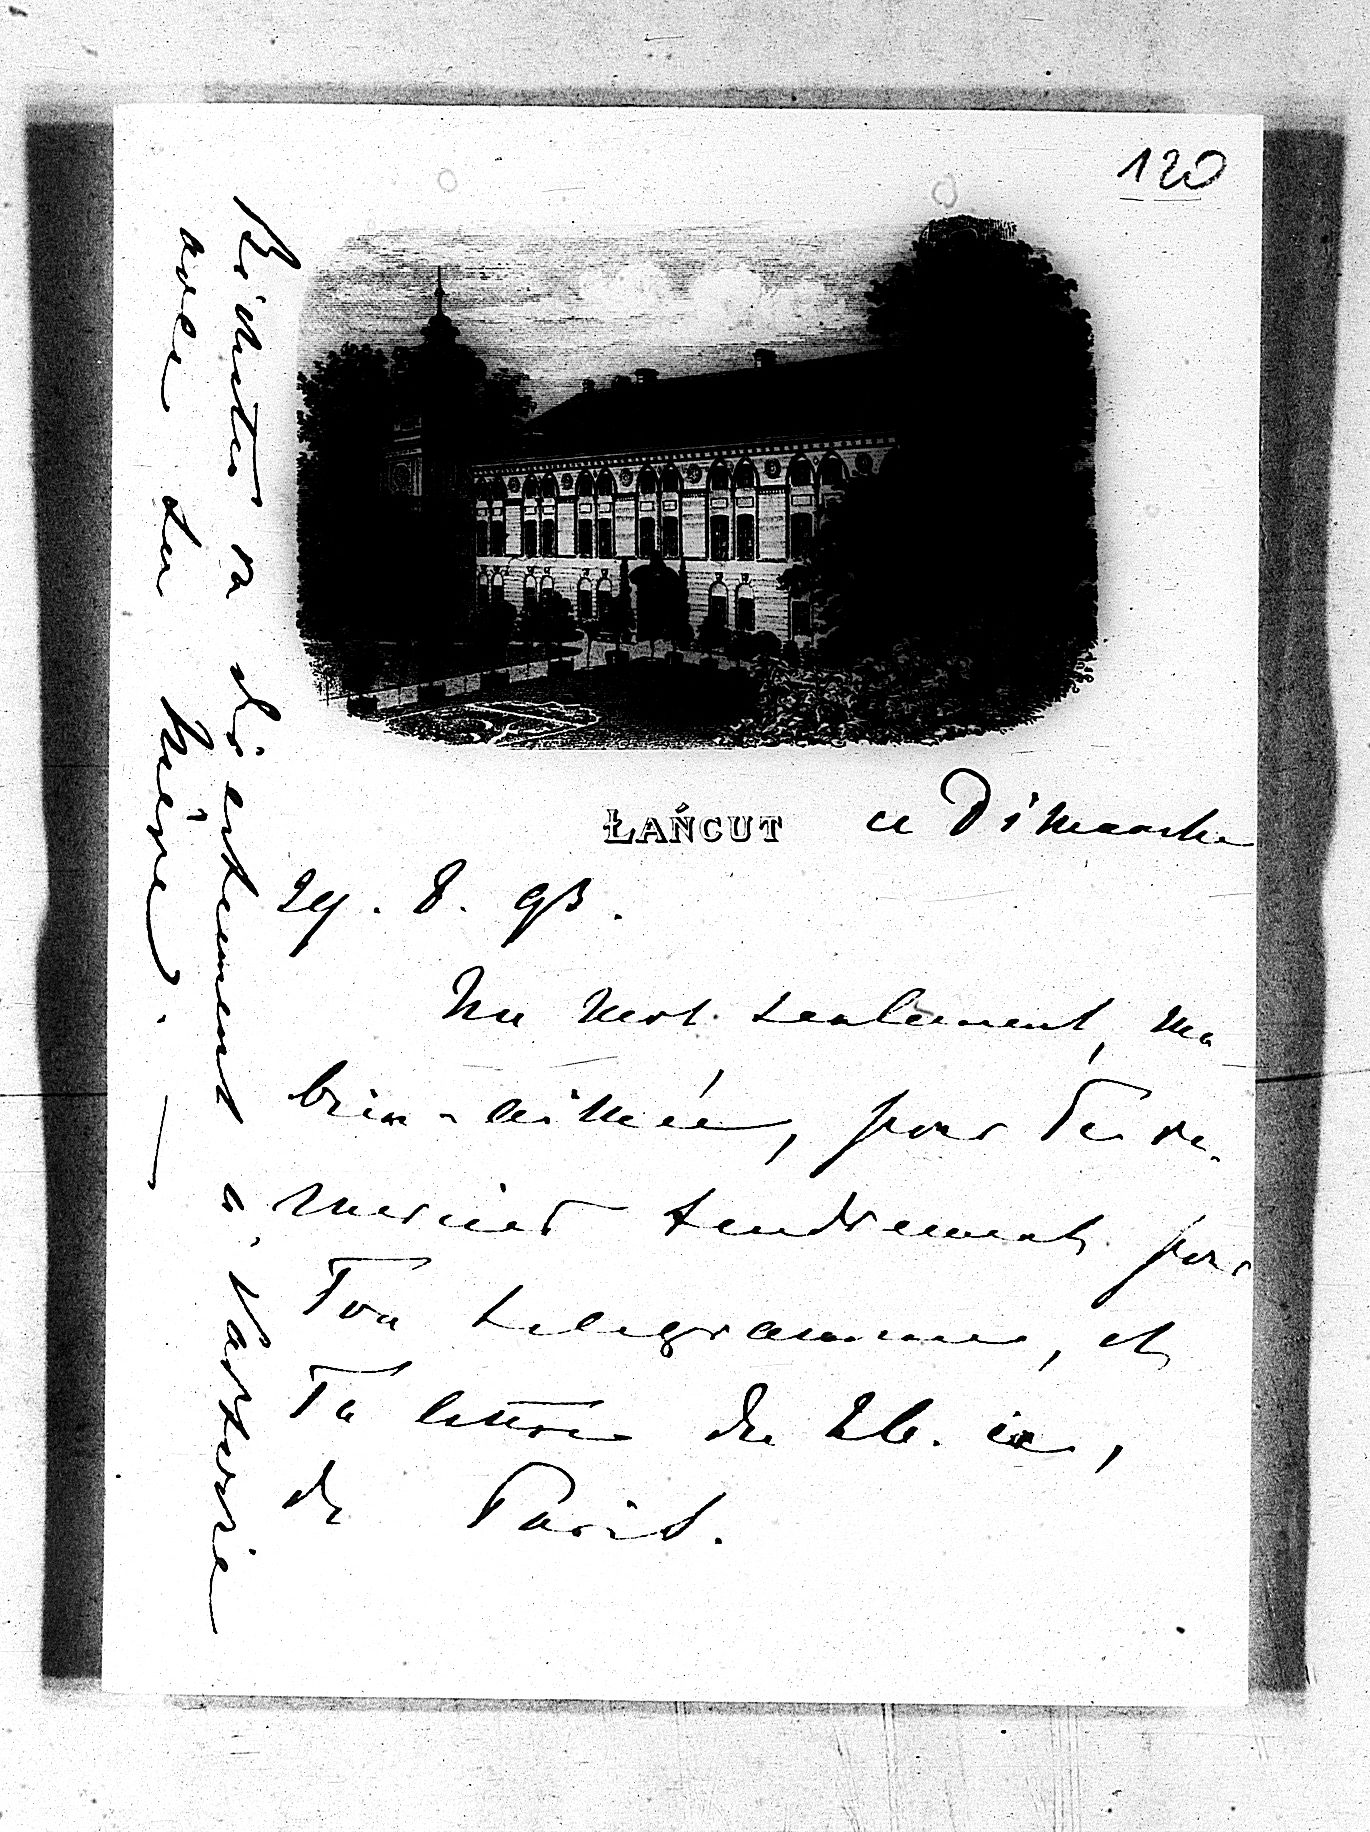 120
ŁAŃCUT ce Dimanche
27. 8. 93.
Un mot seulement, ma
bien-aimée, pour Te re-
mercier tendrement pour
Ton telegramme, et
Ta lettre du 26. ie,
de Paris.
a directement a Varsovie
avec sa mère. —